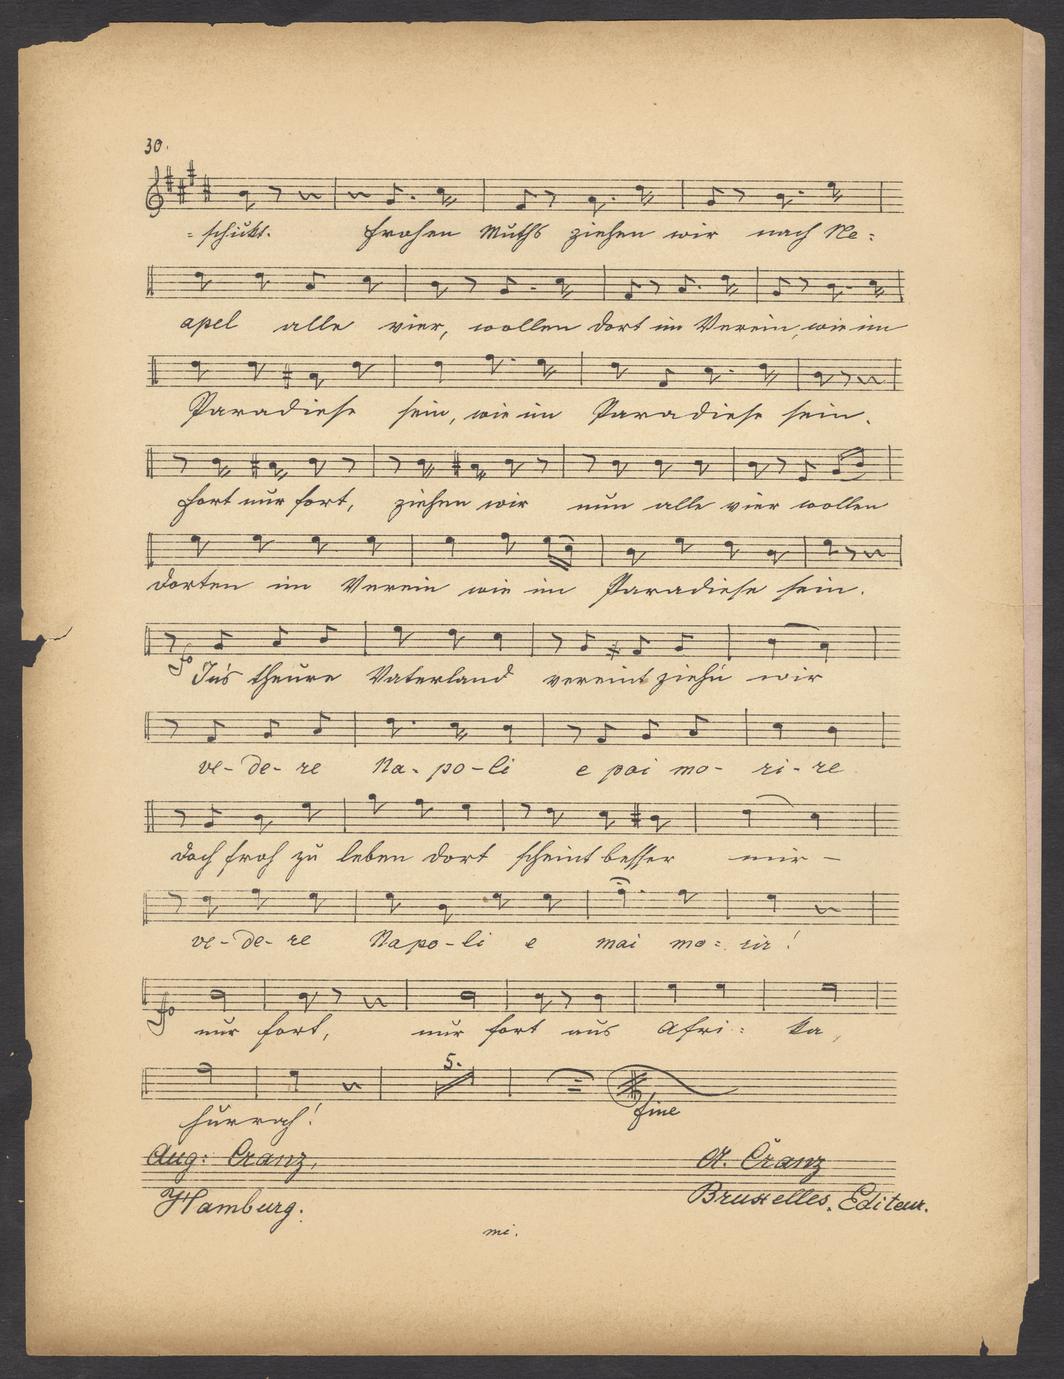 30.
=schickt. frohen Muths ziehen wir nach Ne=
apel alle vier, wollen dort im Verein, wie im
Paradiese sein, wie im Paradiese sein.
fort nur fort, ziehen wir nun alle vier wollen
dorten im Verein wie im Paradiese sein.
fo
In's theure Vaterland vereint zieh'n wir
ve-de-re Na-po-li e poi mo-ri-re
doch froh zu leben dort scheint besser mir –
ve-de-re Napo-li e mai mo=rir!
fo
nur fort, nur fort aus Afri=ka,
5.
hurrah! fine
Aug: Cranz, A. Cranz
Hamburg. Bruxelles, Editeur.
mi.